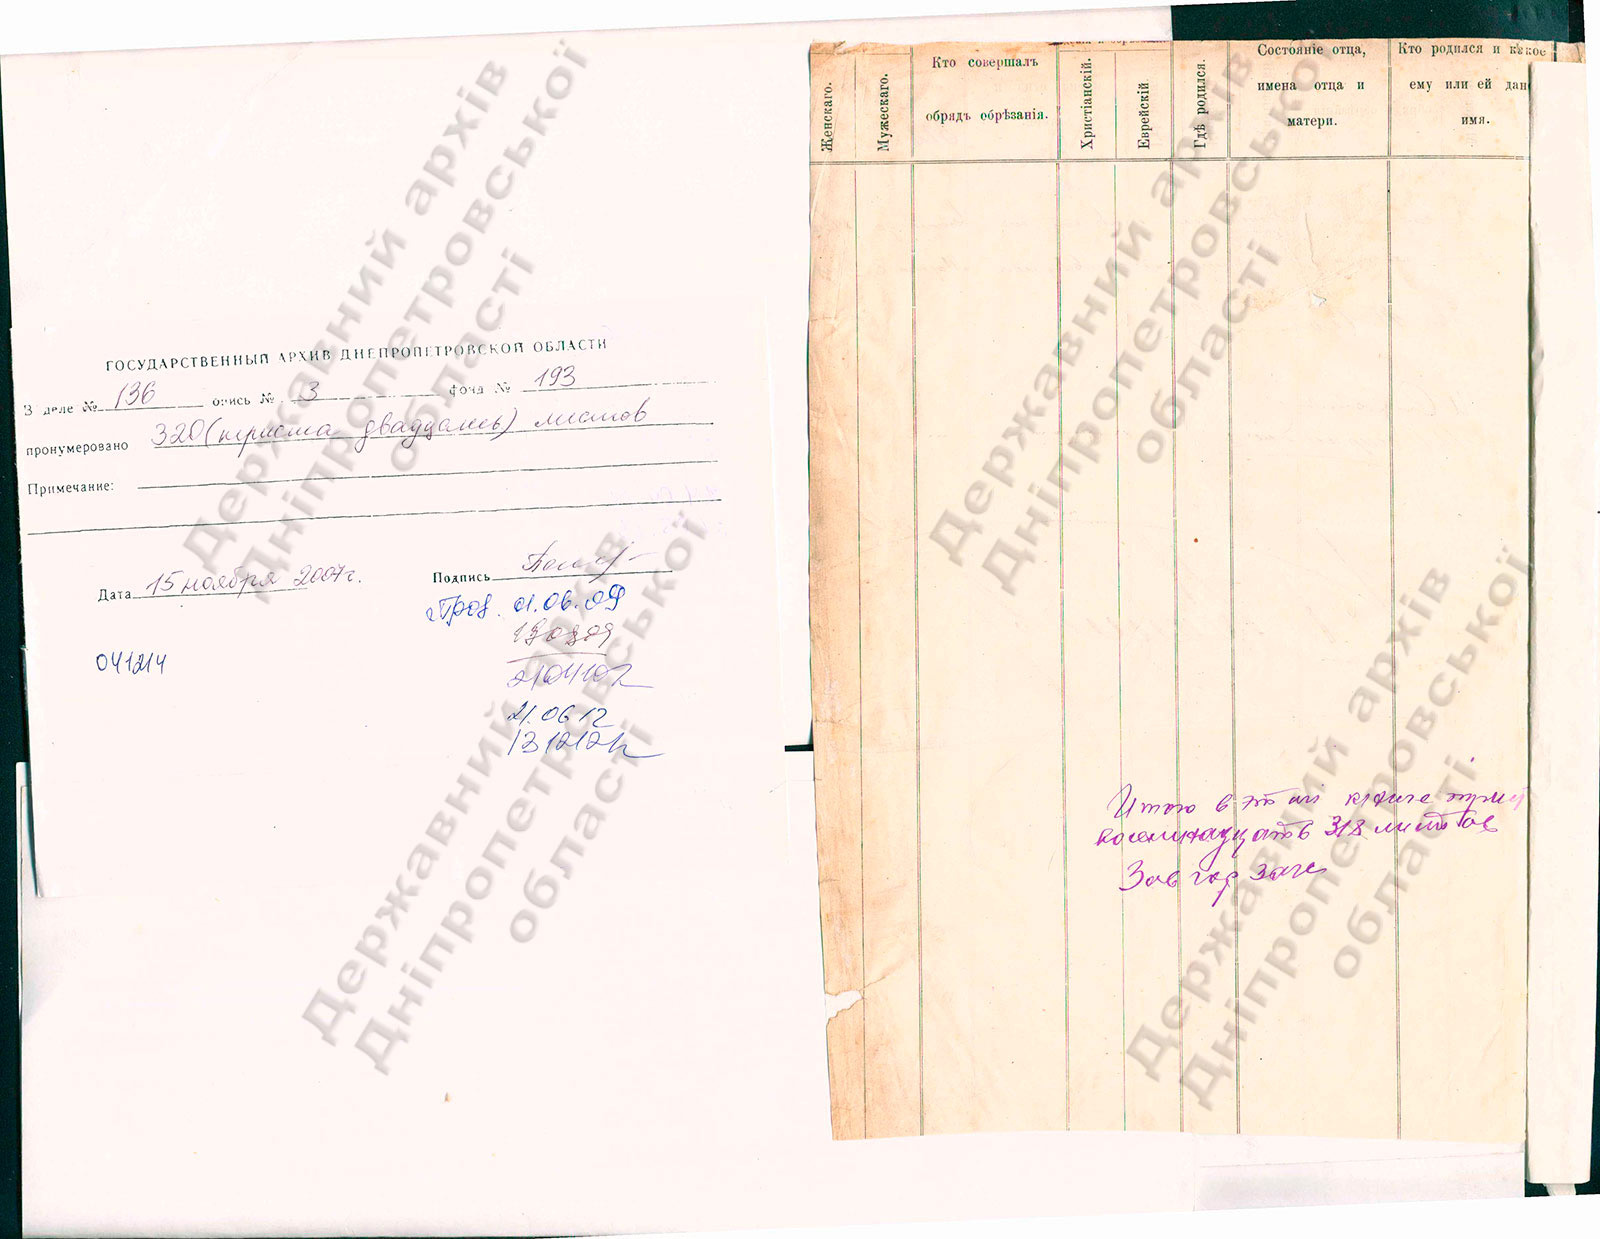 ГОСУДАРСТВЕННЫЙ АРХИВ ДНЕПРОПЕТРОВСКОЙ ОБЛАСТИ
В деле № 136 опись № 3 фонд № 193
пронумеровано 320 (триста двадцать) листов
Примечание:
Дата 15 ноября 2007г. Подпись
01.06.09
21.06.12
131212
041214
Женскаго.
Мужескаго.
Кто совершалъ
обрядъ обрѣзанія.
Христіанскій.
Еврейскій
Гдѣ родился.
Состояніе отца,
имена отца и
матери.
Кто родился и какое
ему или ей дан
имя.
Итого в этой книге трист
восемнадцать 318 листов
Зав гор загс
Державний архів
Дніпропетровської
області
Державний архів
Дніпропетровської
області
Державний архів
Дніпропетровської
області
Державний архів
Дніпропетровської
області